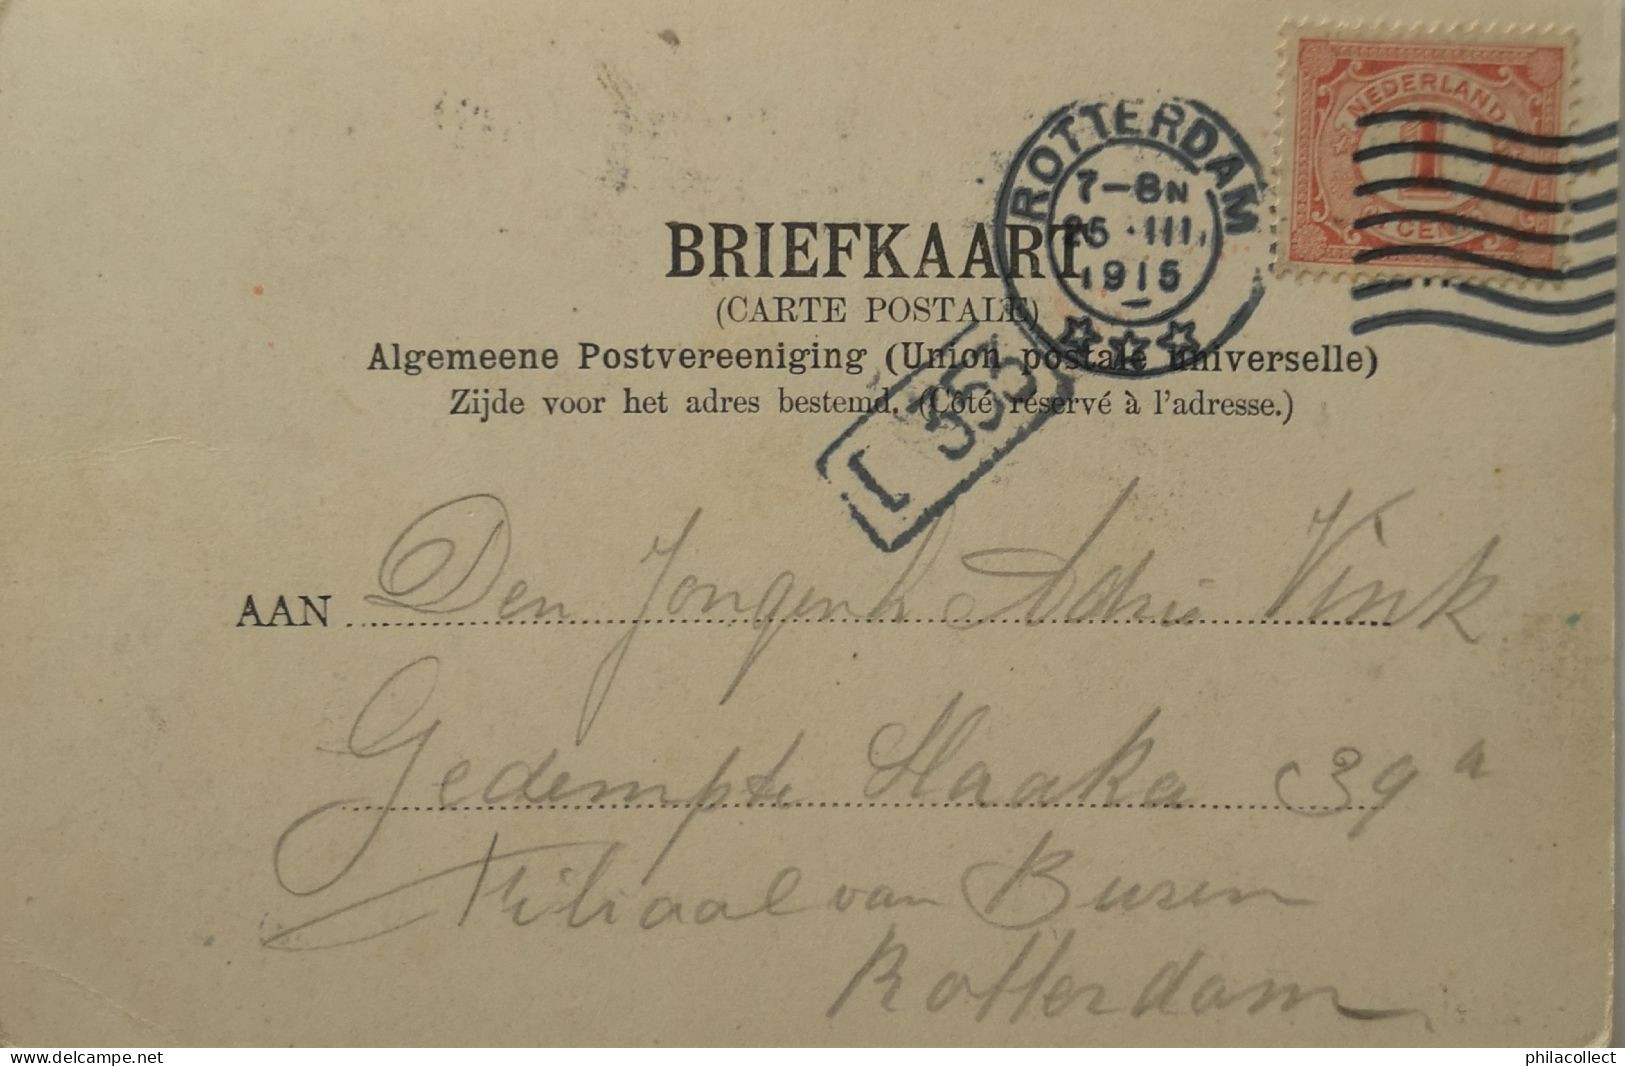 NEDERLAND
1
CENT
ROTTERDAM
7-8N
25 · III
1915
BRIEFKAART
(CARTE POSTALE)
Algemeene Postvereeniging (Union postale universelle)
Zijde voor het adres bestemd. (Côté réservé à l'adresse.)
353
AAN Den Jongenh Adri Vink
Gedempte Slaaka 39a
Filiaal van Buren
Rotterdam
www.delcampe.net
philacollect